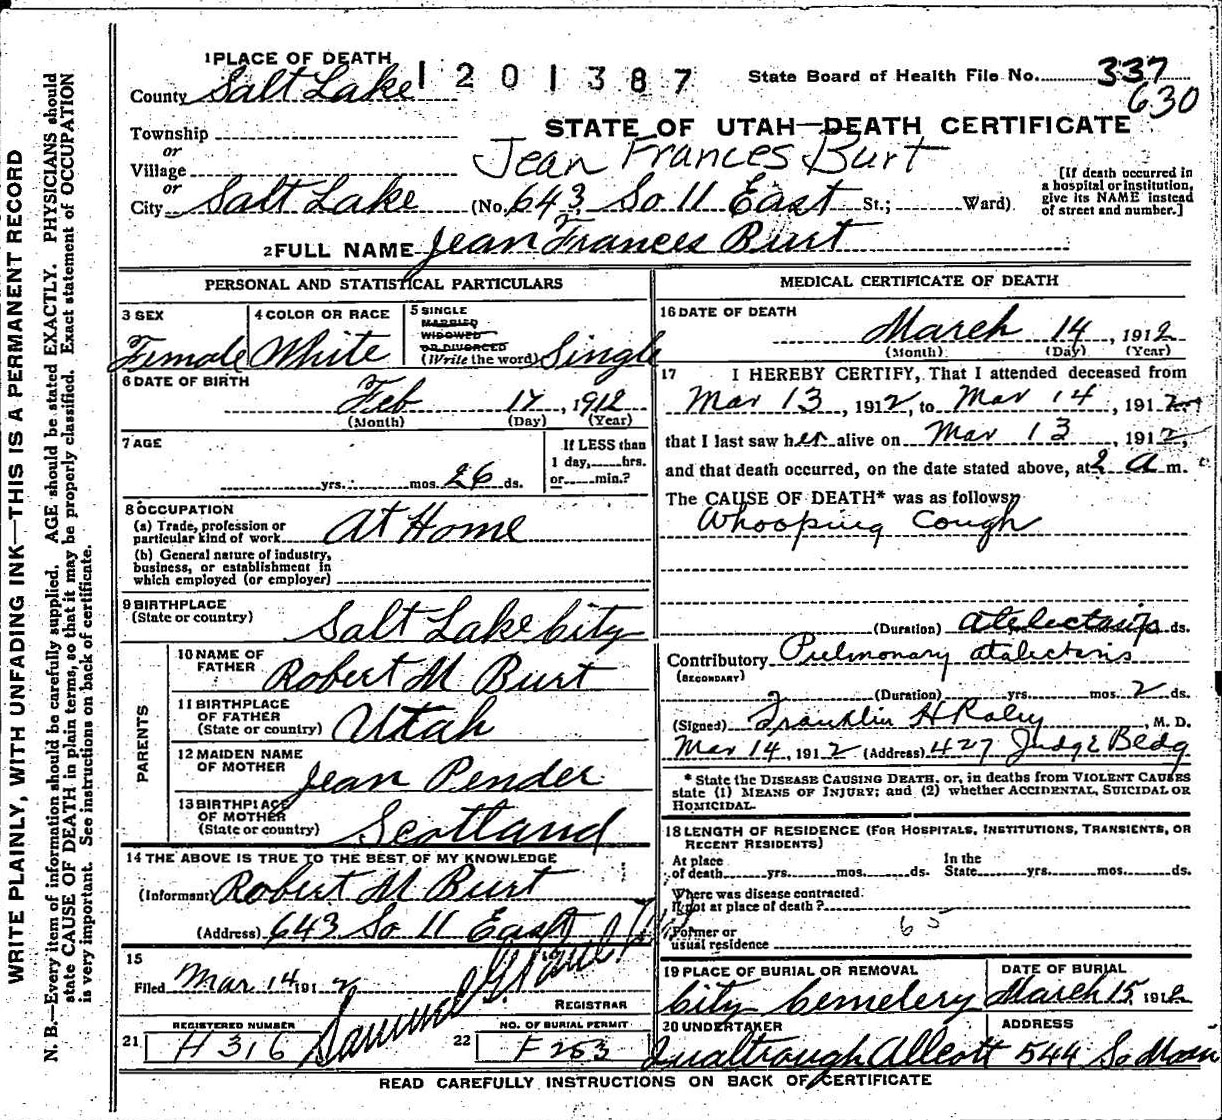 1 PLACE OF DEATH
1201387
State Board of Health File No. 337
630
County Salt Lake
STATE OF UTAH—DEATH CERTIFICATE
Township
or
Jean Frances Burt
Village
or
City Salt Lake (No. 643 So 11 East St.; Ward)
[If death occurred in
a hospital or institution,
give its NAME instead
of street and number.]
2 FULL NAME Jean Frances Burt
PERSONAL AND STATISTICAL PARTICULARS
3 SEX
Female
4 COLOR OR RACE
White
5 SINGLE
MARRIED
WIDOWED
OR DIVORCED
(Write the word) Single
6 DATE OF BIRTH
Feb 17, 1912
(Month) (Day) (Year)
7 AGE
yrs. mos. 26 ds.
If LESS than
1 day, hrs.
or min.?
8 OCCUPATION
(a) Trade, profession or
particular kind of work At Home
(b) General nature of industry,
business, or establishment in
which employed (or employer)
9 BIRTHPLACE
(State or country) Salt Lake City
PARENTS
10 NAME OF
FATHER Robert M Burt
11 BIRTHPLACE
OF FATHER
(State or country) Utah
12 MAIDEN NAME
OF MOTHER Jean Pender
13 BIRTHPLACE
OF MOTHER
(State or country) Scotland
14 THE ABOVE IS TRUE TO THE BEST OF MY KNOWLEDGE
(Informant) Robert M Burt
(Address) 643 So 11 East
15
Filed Mar 14 1912
Samuel G
REGISTRAR
21 REGISTERED NUMBER
H 316
22 NO. OF BURIAL PERMIT
F 253
MEDICAL CERTIFICATE OF DEATH
16 DATE OF DEATH
March 14, 1912
(Month) (Day) (Year)
17 I HEREBY CERTIFY, That I attended deceased from
Mar 13, 1912, to Mar 14, 1912
that I last saw her alive on Mar 13, 1912,
and that death occurred, on the date stated above, at 2 a m.
The CAUSE OF DEATH* was as follows:
Whooping Cough
(Duration) atelectasis ds.
Contributory Pulmonary atalectasis
(SECONDARY)
(Duration) yrs. mos. 2 ds.
(Signed) Franklin H Raley, M. D.
Mar 14, 1912 (Address) 427 Judge Bldg
* State the DISEASE CAUSING DEATH, or, in deaths from VIOLENT CAUSES
state (1) MEANS OF INJURY; and (2) whether ACCIDENTAL, SUICIDAL OR
HOMICIDAL.
18 LENGTH OF RESIDENCE (FOR HOSPITALS, INSTITUTIONS, TRANSIENTS, OR
RECENT RESIDENTS)
At place
of death yrs. mos. ds.
In the
State yrs. mos. ds.
Where was disease contracted.
If not at place of death?
65
Former or
usual residence
19 PLACE OF BURIAL OR REMOVAL
City Cemetery
DATE OF BURIAL
March 15, 1912
20 UNDERTAKER
Qualtrough Allcott
ADDRESS
544 So Main
READ CAREFULLY INSTRUCTIONS ON BACK OF CERTIFICATE
WRITE PLAINLY, WITH UNFADING INK—THIS IS A PERMANENT RECORD
N. B.—Every item of information should be carefully supplied. AGE should be stated EXACTLY. PHYSICIANS should
state CAUSE OF DEATH in plain terms, so that it may be properly classified. Exact statement of OCCUPATION
is very important. See instructions on back of certificate.